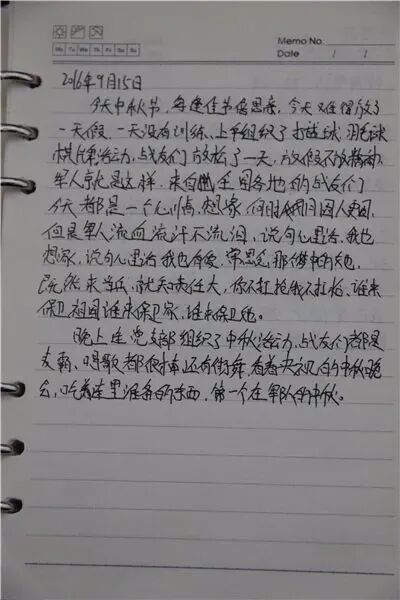 Mo Tu We Th Fr Sa Su
Memo No.
Date / /
2016年9月15日
今天中秋节，每逢佳节倍思亲，今天难得放了
一天假，一天没有训练、上午组织了打篮球、羽毛球
棋牌活动，战友们放松了一天，放假不放精神，
军人就是这样，来自全国各地的战友们
今天都是一个心情，想家，何时
但是军人流血流汗不流泪，说句心里话，我也
想家，说句心里话我也有爱，常思念那梦中的她，
既然来当兵，就知责任大，你不扛枪我不扛枪、谁来
保卫祖国谁来保卫家，谁来保卫她。
晚上连党支部组织了中秋活动，战友们都是
麦霸、唱歌都很棒还有街舞，看着央视的中秋晚
会，吃着连里准备的东西，第一个在军队的中秋。